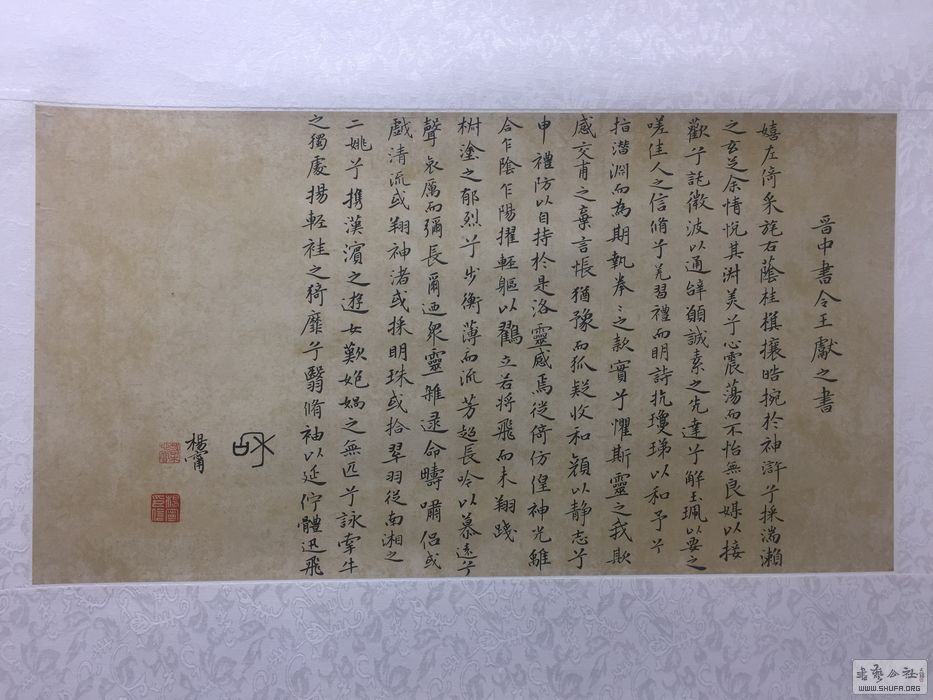 晉中書令王獻之書
嬉左倚采旄右蔭桂旗攘皓捥於神滸兮採湍瀨
之玄芝余情悅其淑美兮心震蕩而不怡無良媒以接
歡兮託微波以通辭願誠素之先達兮解玉珮以要之
嗟佳人之信脩兮羌習禮而明詩抗瓊珶以和予兮
指潛淵而為期執拳〻之款實兮懼斯靈之我欺
感交甫之棄言悵猶豫而狐疑收和顏以静志兮
申禮防以自持於是洛靈感焉徙倚仿偟神光離
合乍陰乍陽擢輕軀以鸖立若將飛而未翔踐
椒塗之郁烈兮步衡薄而流芳超長吟以慕遠兮
聲哀厲而彌長爾迺衆靈雜遝命疇嘯侶或
戲清流或翔神渚或採明珠或拾翠羽從南湘之
二姚兮攜漢濱之遊女歎匏媧之無匹兮詠牽牛
之獨處揚輕袿之猗靡兮翳脩袖以延佇體迅飛
楊甯
書法公社
WWW.SHUFA.ORG